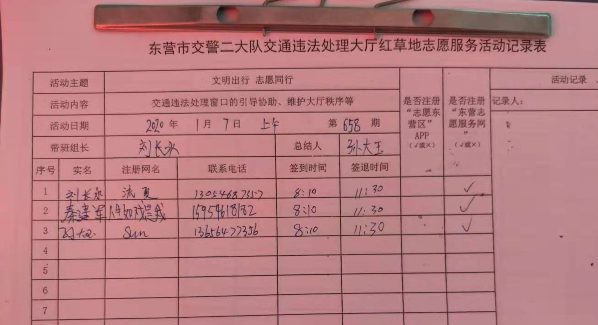 东营市交警二大队交通违法处理大厅红草地志愿服务活动记录表
活动主题 文明出行 志愿同行
活动内容 交通违法处理窗口的引导协助、维护大厅秩序等
活动日期 2020 年 1 月 7 日 上午 第 658 期
带班组长 刘长永 总结人 孙大玉
是否注册“志愿东营区”APP（√或×）
是否注册“东营志愿服务网”（√或×）
活动记录
记录人：
序号 实名 注册网名 联系电话 签到时间 签退时间
1 刘长永 流夏 8:10 11:30 √
2 秦建军 8:10 11:30 √
3 Sun 13656477356 8:10 11:30 √
4
5
6
7